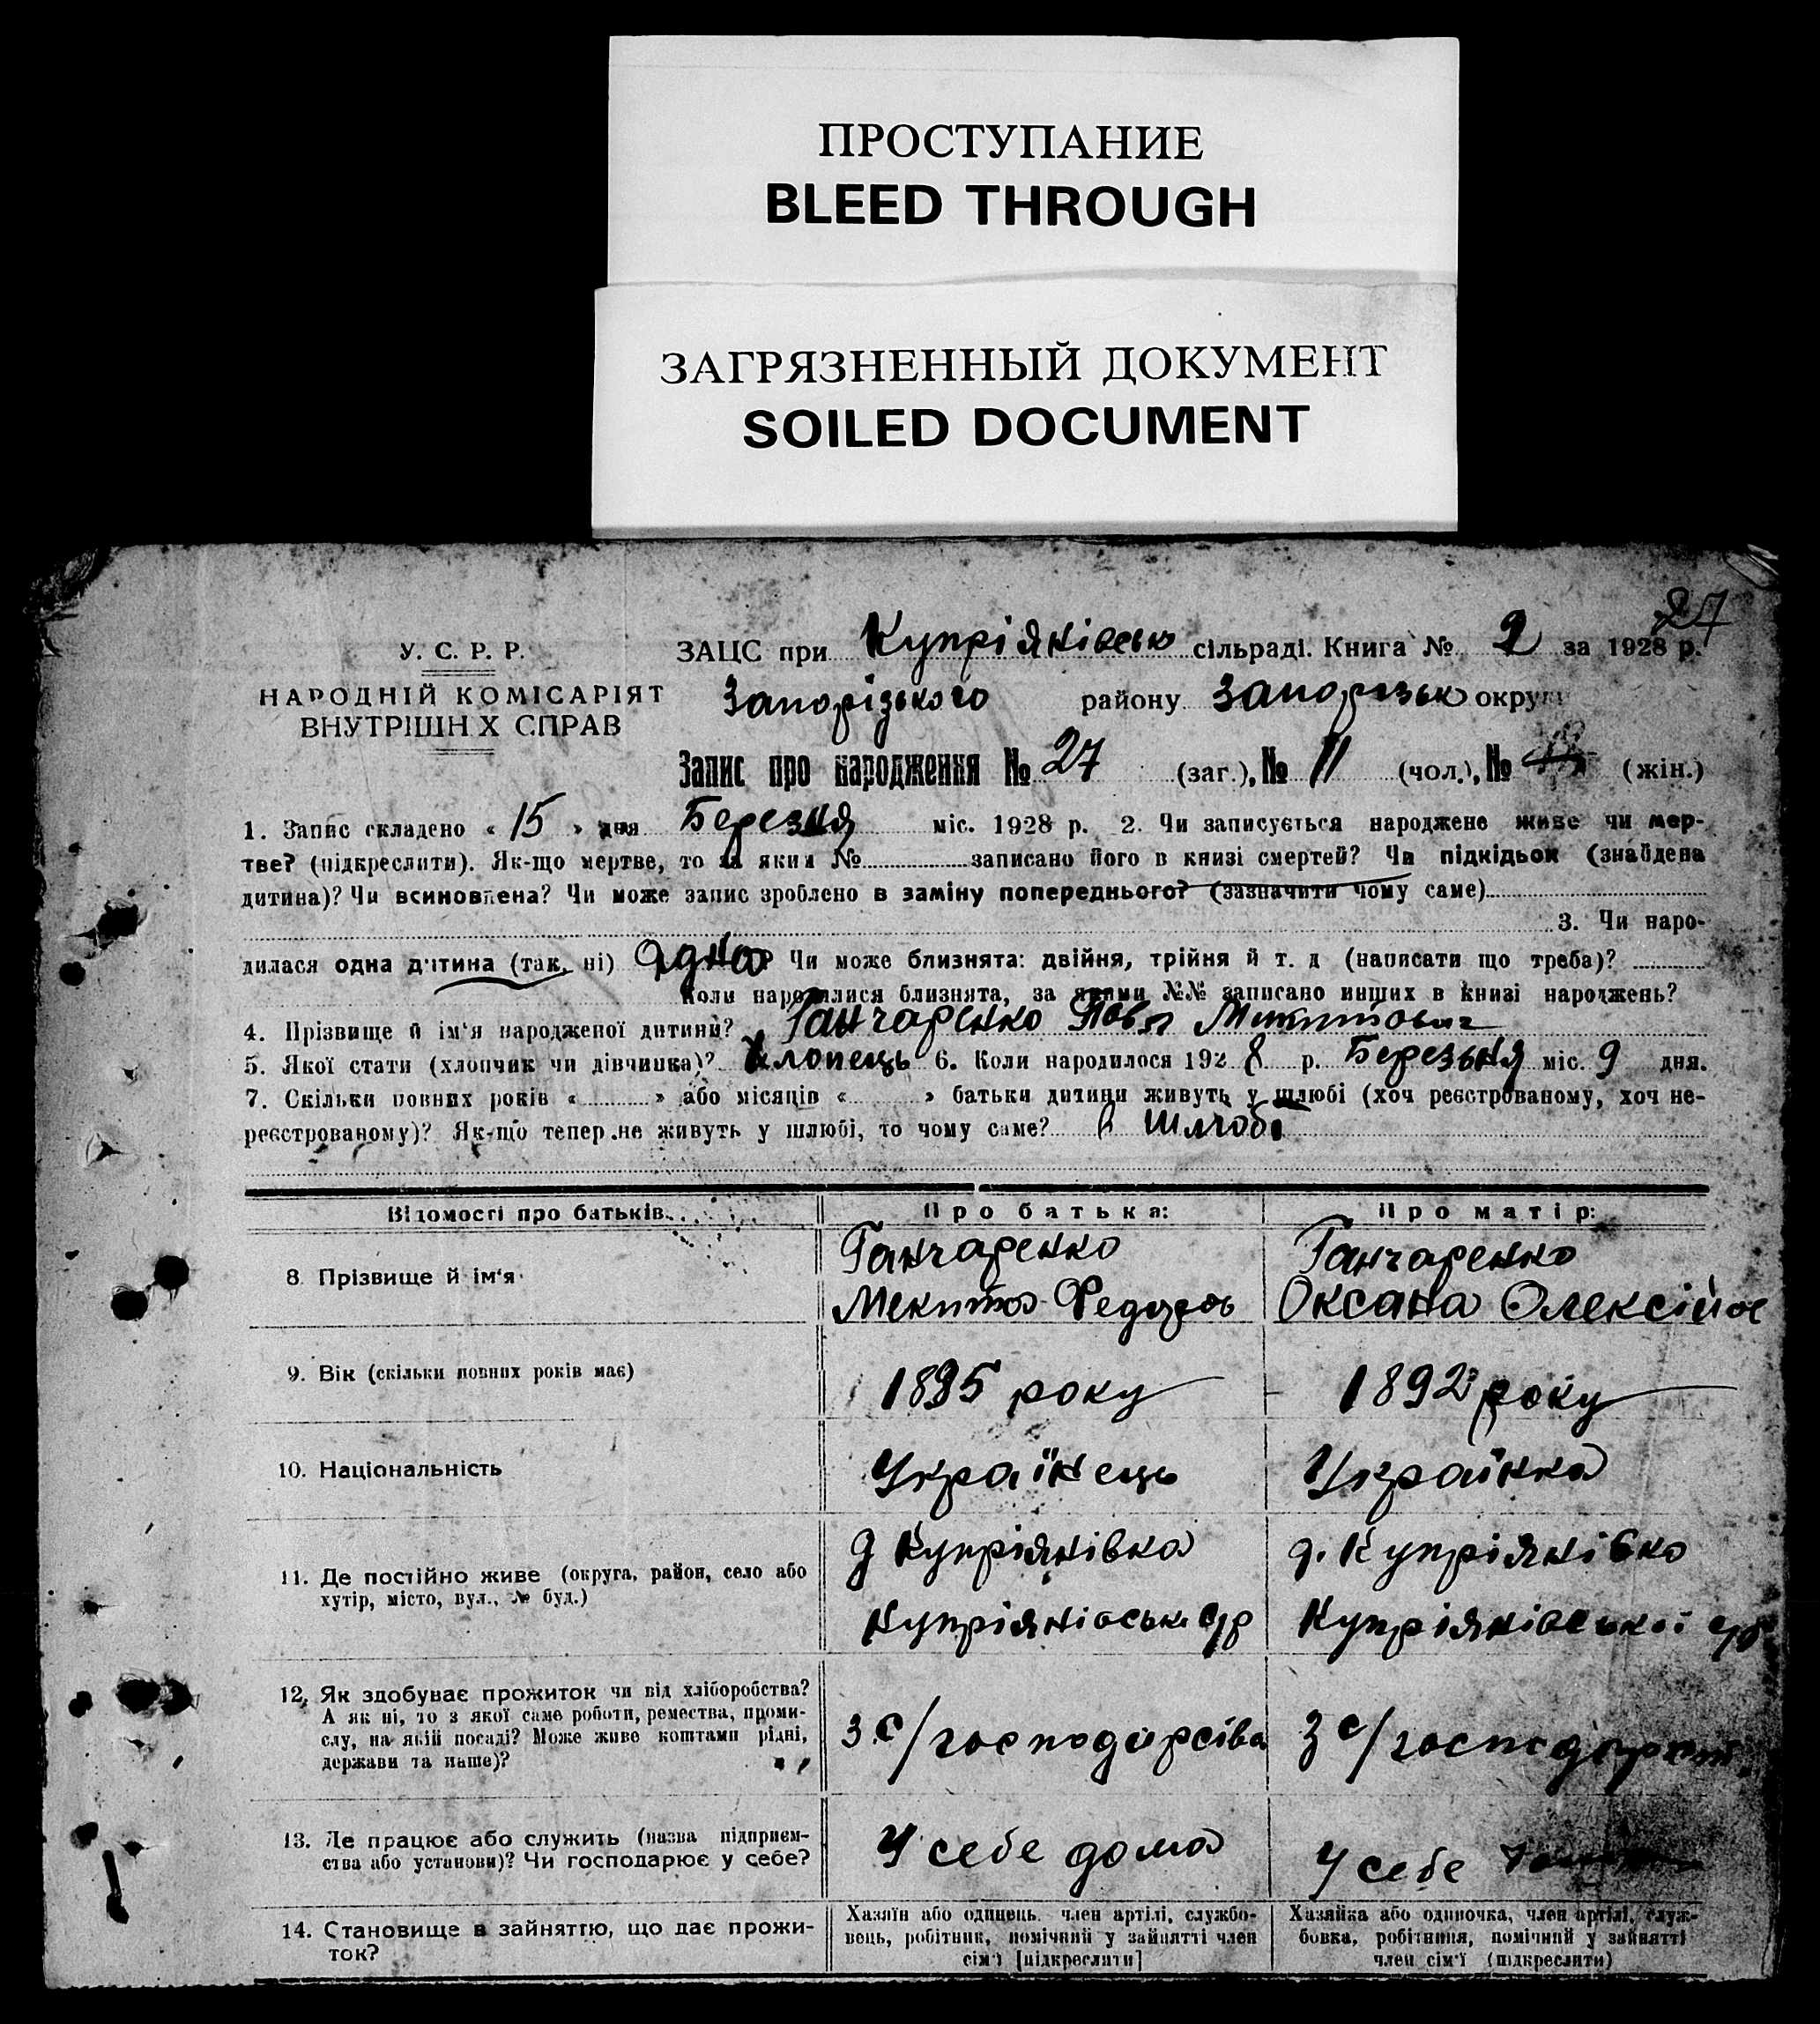 ПРОСТУПАНИЕ
BLEED THROUGH
ЗАГРЯЗНЕННЫЙ ДОКУМЕНТ
SOILED DOCUMENT
27
У. С. Р. Р.
НАРОДНІЙ КОМІСАРІЯТ
ВНУТРІШН Х СПРАВ
ЗАЦС при Купріянівськ сільраді. Книга № 2 за 1928 р.
Запорізького району Запорізьк округи
Запис про народження № 27 (заг.), № 11 (чол.), № (жін.)
1. Запис складено « 15 » дня Березня міс. 1928 р. 2. Чи записується народжене живе чи мер-
тве? (підкреслити). Як-що мертве, то за яким № записано його в книзі смертей? Чи підкідьок (знайдена
дитина)? Чи всиновлена? Чи може запис зроблено в заміну попереднього? (зазначити чому саме)
3. Чи наро-
дилася одна дитина (так, ні) Одна? Чи може близнята: двійня, трійня й т. д (написати що треба)?
Коли народилися близнята, за якими №№ записано инших в книзі народжень?
4. Прізвище й ім'я народженої дитини? Ганчаренко Павл Микитович
5. Якої стати (хлопчик чи дівчинка)? Хлопець 6. Коли народилося 1928 р. Березьня міс. 9 дня.
7. Скільки повних років « » або місяців « » батьки дитини живуть у шлюбі (хоч реєстрованому, хоч не-
реєстрованому)? Як-що тепер не живуть у шлюбі, то чому саме? в шлюбі
Відомості про батьків. Про батька: Про матір:
8. Прізвище й ім'я Ганчаренко Ганчаренко
Мекита Федоров Оксана Олексійов
9. Вік (скільки повних років має) 1895 року 1892 року
10. Національність Українець Українка
11. Де постійно живе (округа, район, село або
хутір, місто, вул., № буд.)
д Купріянівка д. Купріянівка
Купріянівськ с/р Купріянівської с/р
12. Як здобуває прожиток чи від хліборобства?
А як ні, то з якої саме роботи, ремества, проми-
слу, на якій посаді? Може живе коштами рідні,
держави та инше)?
З с/господарсіва З с/господарст
13. Де працює або служить (назва підприєм-
ства або установи)? Чи господарює у себе?
У себе дома У себе
14. Становище в зайняттю, що дає прожи-
ток?
Хазяїн або одинець, член артілі, службо-
вець, робітник, помічний у зайнятті член
сім'ї [підкреслити]
Хазяйка або одиночка, член артілі, служ-
бовка, робітниця, помічний у зайнятті
член сім'ї (підкреслити)